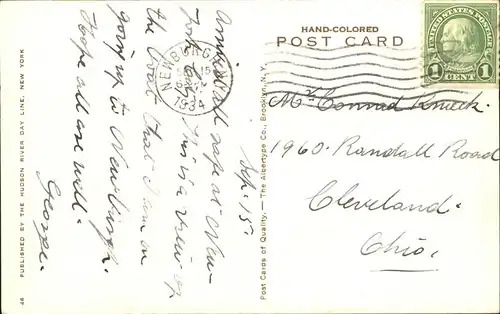 HAND-COLORED
POST CARD
UNITED STATES POSTAGE
1 CENT 1
NEWBURGH
15
1934
Mr. Conrad
1960 Randall Road
Cleveland.
Ohio.
Sep. 15.
Arrived all safe at New-
York City. This is a view of
the boat that I am on
going up to Newburgh.
Hope all are well.
George.
PUBLISHED BY THE HUDSON RIVER DAY LINE, NEW YORK
46
Post Cards of Quality. — The Albertype Co., Brooklyn, N.Y.